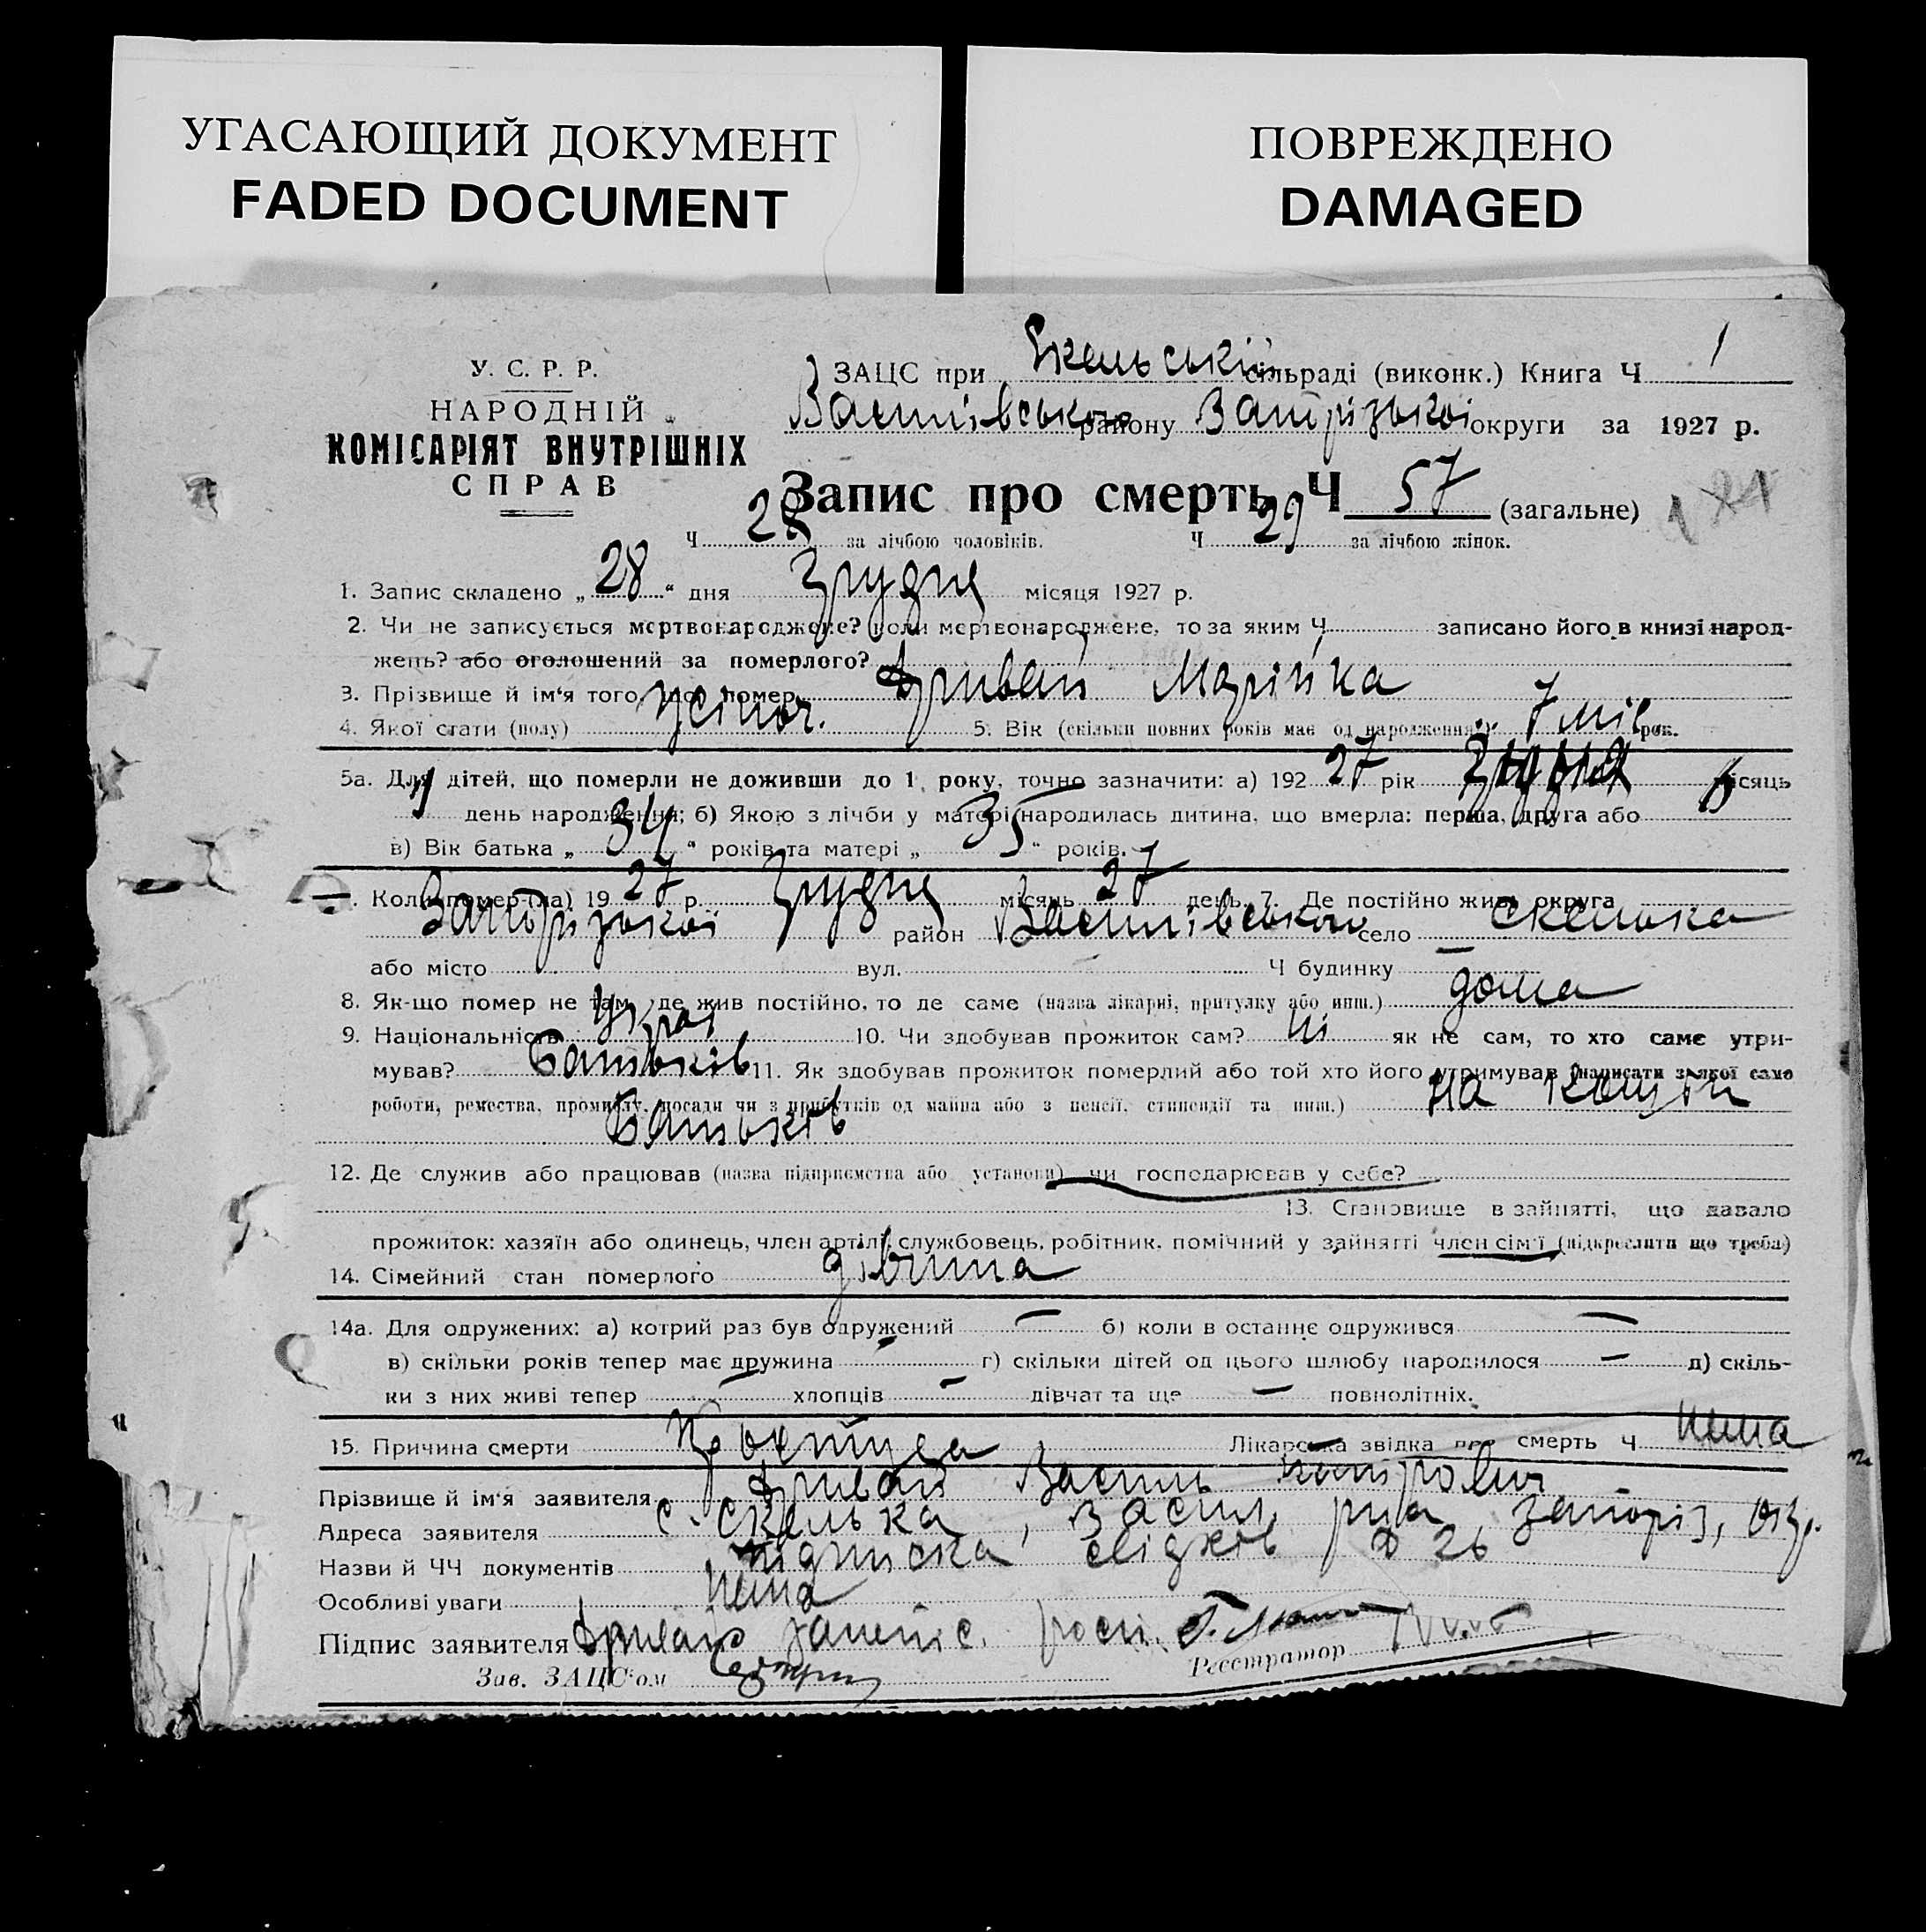 УГАСАЮЩИЙ ДОКУМЕНТ
FADED DOCUMENT
ПОВРЕЖДЕНО
DAMAGED
У. С. Р. Р.
НАРОДНІЙ
КОМІСАРІЯТ ВНУТРІШНІХ
СПРАВ
ЗАЦС при Скельській сільраді (виконк.) Книга Ч 1
Василівського району Запорізької округи за 1927 р.
Запис про смерть Ч 57 (загальне)
Ч 28 за лічбою чоловіків. Ч 29 за лічбою жінок.
1. Запис складено „28“ дня Грудня місяця 1927 р.
2. Чи не записується мертвонароджене? коли мертвонароджене, то за яким Ч записано його в книзі народ-
жень? або оголошений за померлого?
3. Прізвище й ім'я того, що помер Марійка
4. Якої стати (полу) жіноч. 5. Вік (скільки повних років має од народження) 7 рок.
5а. Для дітей, що померли не доживши до 1 року, точно зазначити: а) 1927 рік місяць
день народження; б) Якою з лічби у матері народилась дитина, що вмерла: перша, друга або
в) Вік батька „34“ років та матері „35“ років.
Коли помер (ла) 1927 р. Грудня місяць 27 день. 7. Де постійно жив: округа
Запорізької район Василівського село Скелька
або місто вул. Ч будинку
8. Як-що помер не там, де жив постійно, то де саме (назва лікарні, притулку або инш.) дома
9. Національність Украї 10. Чи здобував прожиток сам? ні як не сам, то хто саме утри-
мував? Батьків 11. Як здобував прожиток померлий або той хто його утримував (написати з якої само
роботи, ремества, промислу, посади чи з прибутків од майна або з пенсії, стипендії та инш.) на кошти
Батьків
12. Де служив або працював (назва підприємства або установи) чи господарював у себе?
13. Становище в зайнятті, що давало
прожиток: хазяїн або одинець, член артілі, службовець, робітник, помічний у зайнятті член сім'ї (підкреслити що треба)
14. Сімейний стан померлого дівчина
14а. Для одружених: а) котрий раз був одружений — б) коли в останнє одружився —
в) скільки років тепер має дружина — г) скільки дітей од цього шлюбу народилося — д) скіль-
ки з них живі тепер — хлопців — дівчат та ще — повнолітніх.
15. Причина смерти Простуда Лікарська звідка про смерть Ч нема
Прізвище й ім'я заявителя Василь Петрович
Адреса заявителя с. Скелька, Васил. р-на Запоріз, окр.
Назви й ЧЧ документів підписка свідків 26
Особливі уваги нема
Підпис заявителя
Зав. ЗАЦС'ом Реєстратор